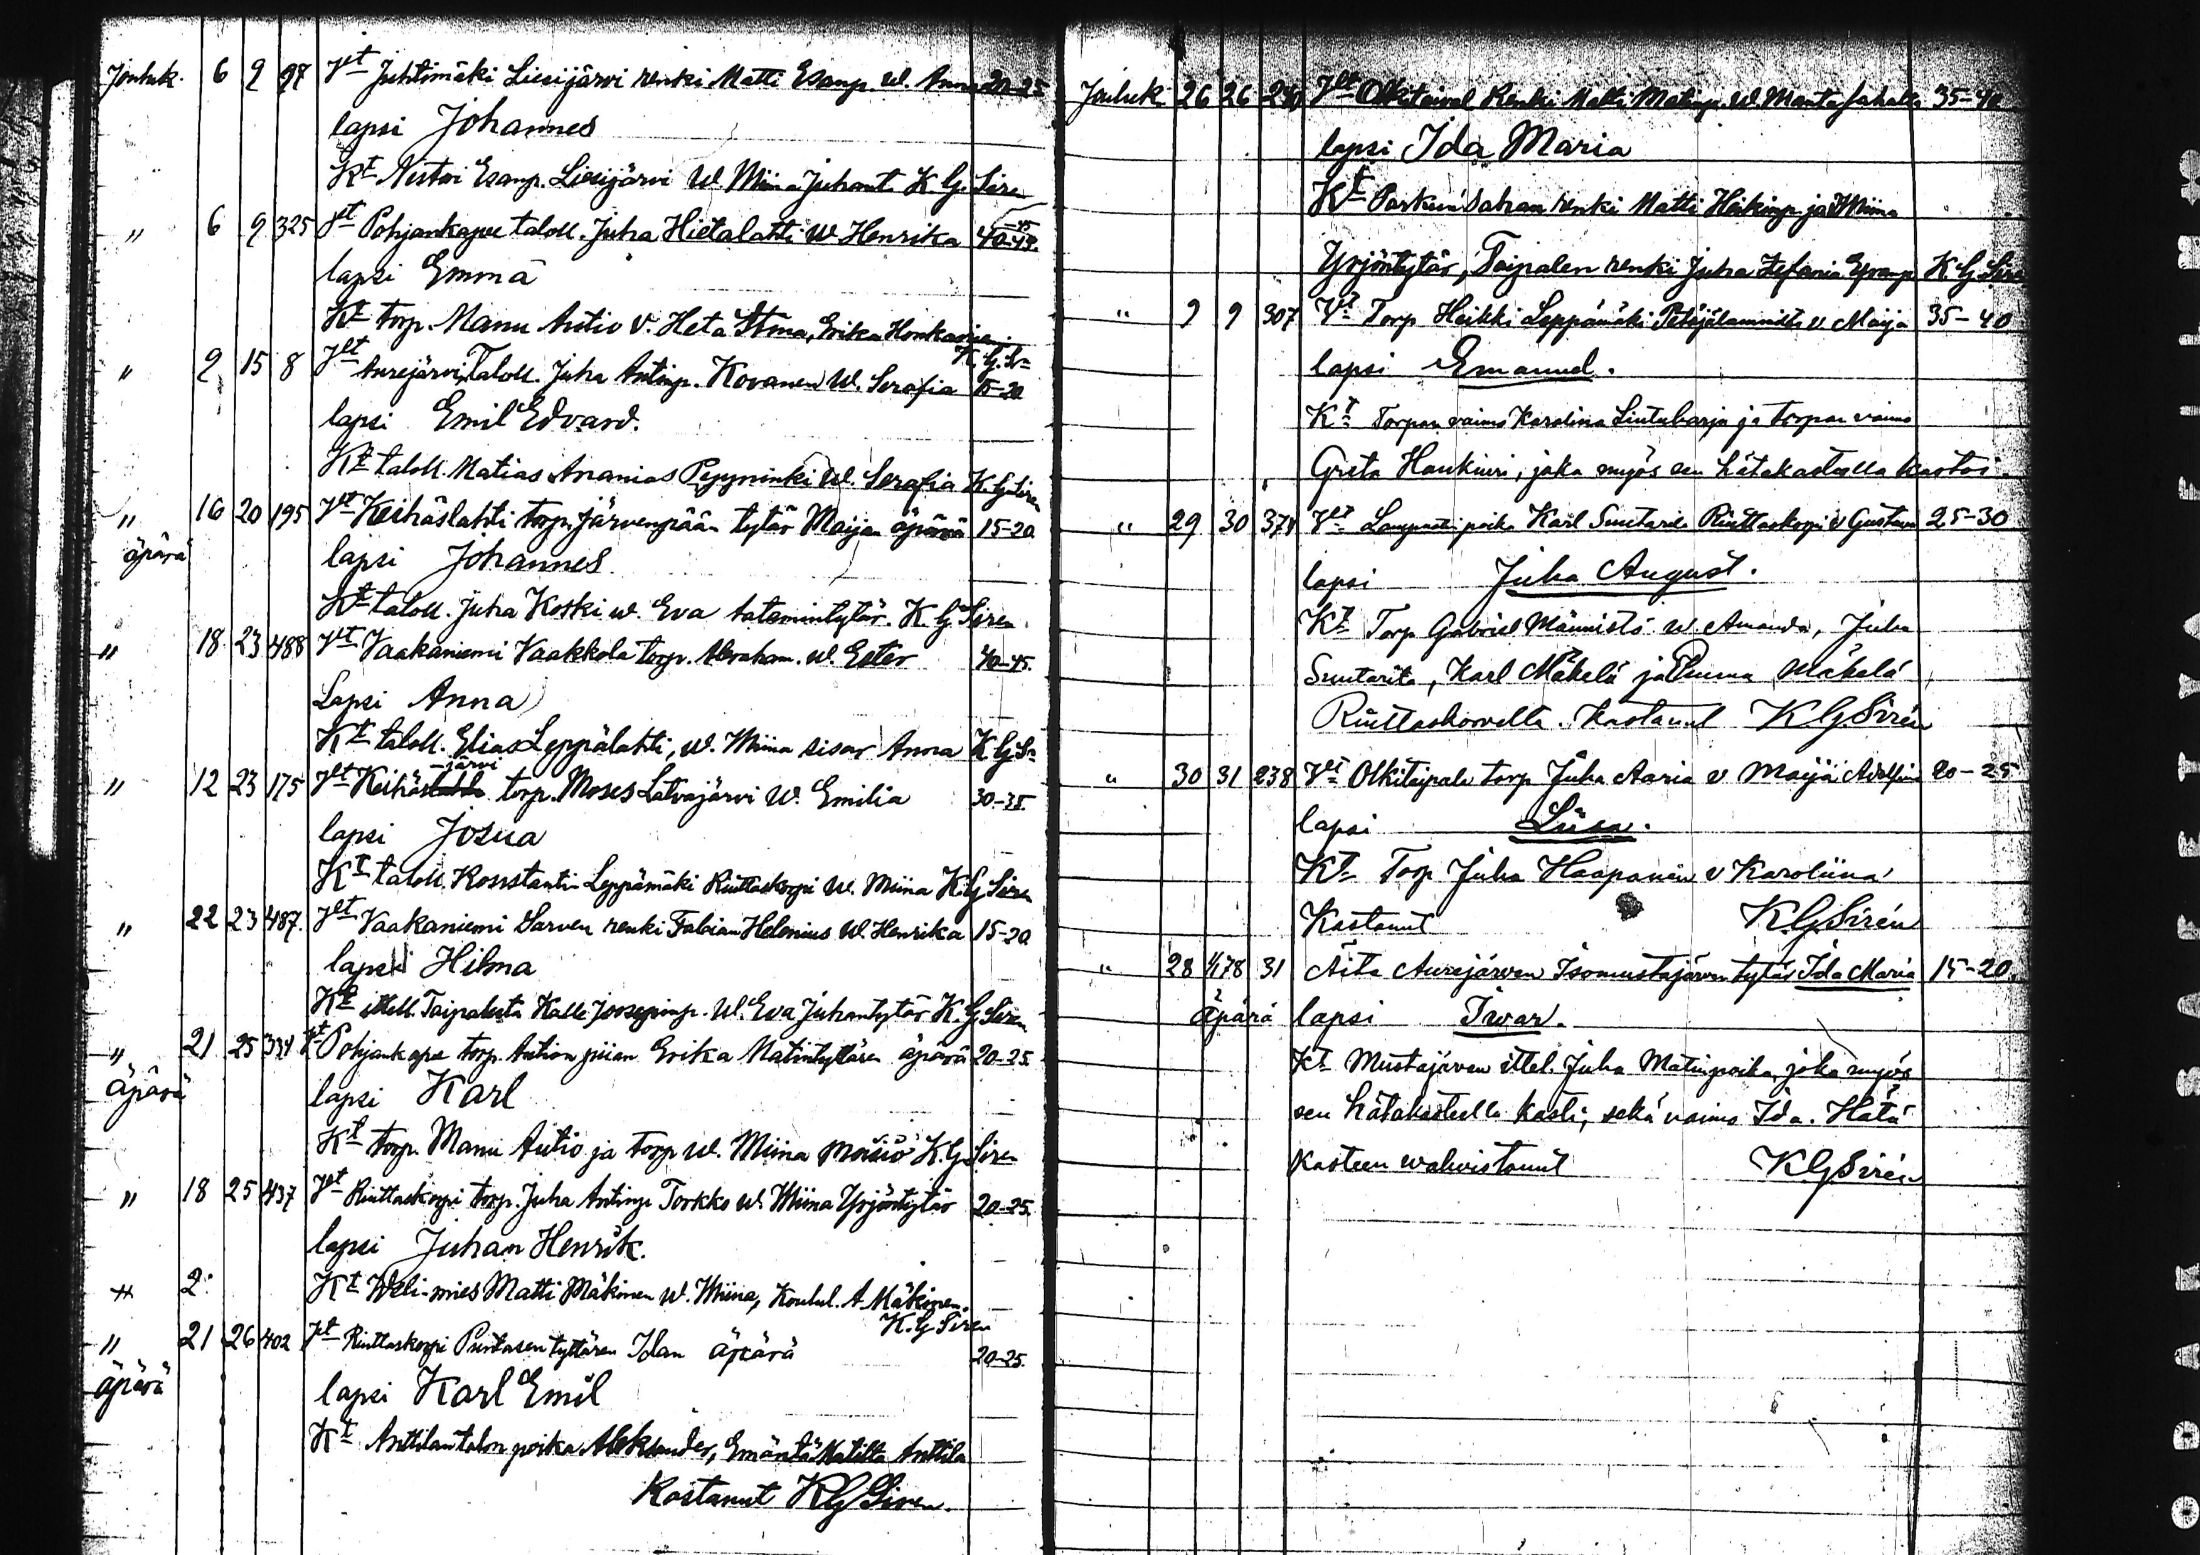 Jouluk. 6 9 97 Vt Juhtimäki Liesijärvi renki Matti Esanp. W. Anna 20-25
lapsi Johannes
Kt Nestori Esanp. Liesijärvi W. Miina Juhant. K. G. Siren
" 6 9 325 Vt Pohjankapee taloll. Juha Hietalahti W. Henrika 40-45
lapsi Emma
Kt torp. Manu Autio v. Heta Stina, Erika Honkaniemi
K. G. Sn
" 9 15 8 Vt Aurejärvi, Taloll. Juha Antinp. Kovanen W. Serafia 15-20
lapsi Emil Edvard.
Kt taloll. Matias Ananias Pyyninki W. Serafia K. G. Siren
" 16 20 195 Vt Keihäslahti torp. Järvenpään tytär Maijan äpärä 15-20
äpärä
lapsi Johannes
Kt taloll. Juha Koski w. Eva K. G. Siren
" 18 23 488 Vt Vaakaniemi Vaakkola torp. Abraham. W. Ester 40-45.
Lapsi Anna
Kt taloll. Elias Leppälahti, W. Miina sisar Anna K G Sn
-järvi
" 12 23 175 Vt Keihäslahti torp. Moses Latvajärvi W. Emilia 30-35.
lapsi Josua
Kt taloll. Konstantin Leppämäki Riuttaskorpi W. Miina K. G. Siren
" 22 23 487. Vt Vaakaniemi Sarven renki Fabian Helenius W. Henrika 15-20
lapsi Hilma
Kt ittell. Taipaleesta Kalle Joosepinp. W. Eva Juhantytär K. G. Siren
" 21 25 334 Vt Pohjankapee torp. Aution piian Erika Matintyttären äpärä 20-25
äpärä
lapsi Karl
Kt torp. Manu Autio ja torp W. Miina Moisio K. G. Siren
" 18 25 437 Vt Riuttaskorpi torp. Juha Antinp Torkko W. Miina Yrjöntytär 20-25.
lapsi Juhan Henrik.
" 2. Kt Weli-mies Matti Mäkinen W. Miina, Koulul. A. Mäkinen.
K. G. Siren
" 21 26 402 Vt Riuttaskorpi Puntasen tyttären Idan äpärä 20-25.
äpärä
lapsi Karl Emil
Kt Anttilan talon poika Aleksander, Emäntä Matilta Anttila
Kastanut K G Siren.
Jouluk 26 26 Vt Olkitaival Renki Matti Matinp. W Manta 35-40
lapsi Ida Maria
Kt Parkuin Sahan renki Matti Heikinp ja Miina
Yrjöntytär, Taipalen renki Juha K G Siren
" 9 9 307 Vt Torp Heikki Leppämäki v Maija 35-40
lapsi Emanuel.
Kt Torpan vaimo Karolina Lintuharja ja torpan vaimo
Greta Hankiuri, joka myös sen hätäkasteella kastoi
" 29 30 374 Vt poika Karl Suutarila Riuttaskorpi v Gustava 25-30
lapsi Juha August.
Kt Torp Gabriel Männistö w. Amanda, Juha
Suutarila, Karl Mäkelä ja Emma Mäkelä
Riuttaskorvelta. Kastanut K G Sirén
" 30 31 238 Vt Olkitaipale torp Juha Aaria v Maija Adolfina 20-25
lapsi Liisa.
Kt Torp Juha Haapanen v Karoliina
Kastanut K. G. Sirén
" 28 1/178 31 Äitä Aurejärven Isomustajärven tytär Ida Maria 15-20.
Äpärä lapsi Iwar.
Kt Mustajärven ittel. Juha Matinpoika, joka myös
sen hätäkasteella kasti, sekä vaimo Ida. Hätä
kasteen wahvistanut K G Sirén
KODAK SAFETY FILM